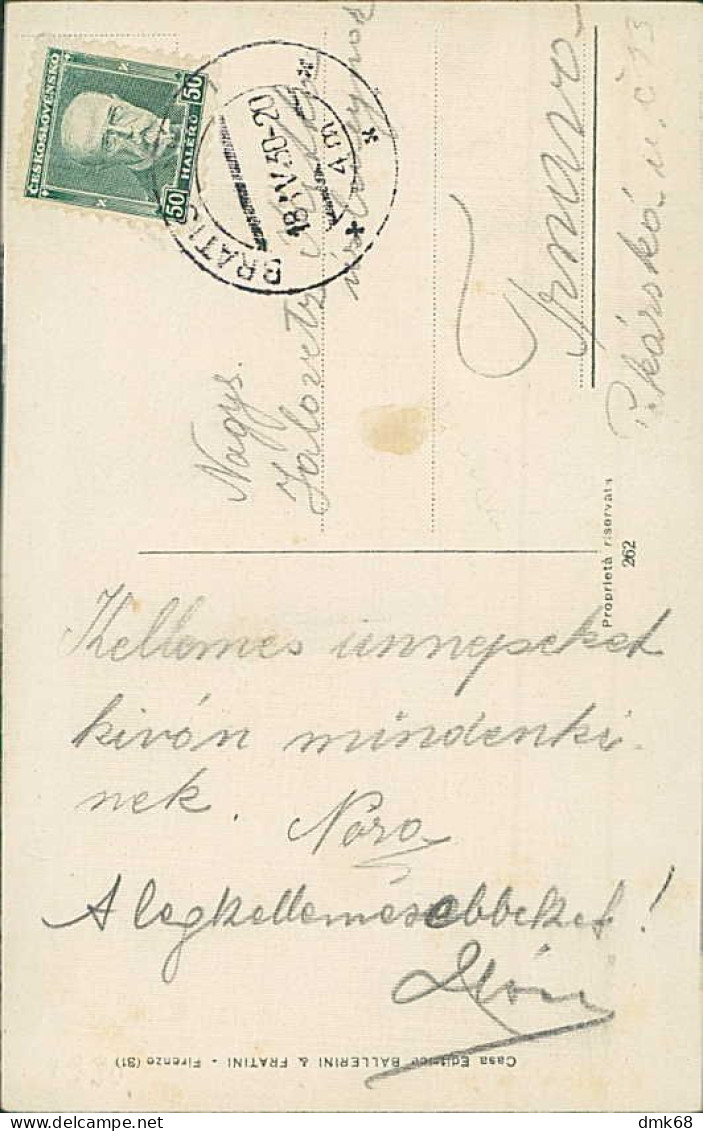 ČESKOSLOVENSKO
50 HALÉŘŮ 50
BRATIS
18.IV.30-20
4m
Nagys.
Jalovetz
úrleánynak
Trnava
Pekárská u. č 13
Proprietà riservata
262
Kellemes ünnepeket
kiván mindenki-
nek.
Nóra
A legkellemesebbeket!
Casa Editrice BALLERINI & FRATINI - Firenze (31)
dmk68